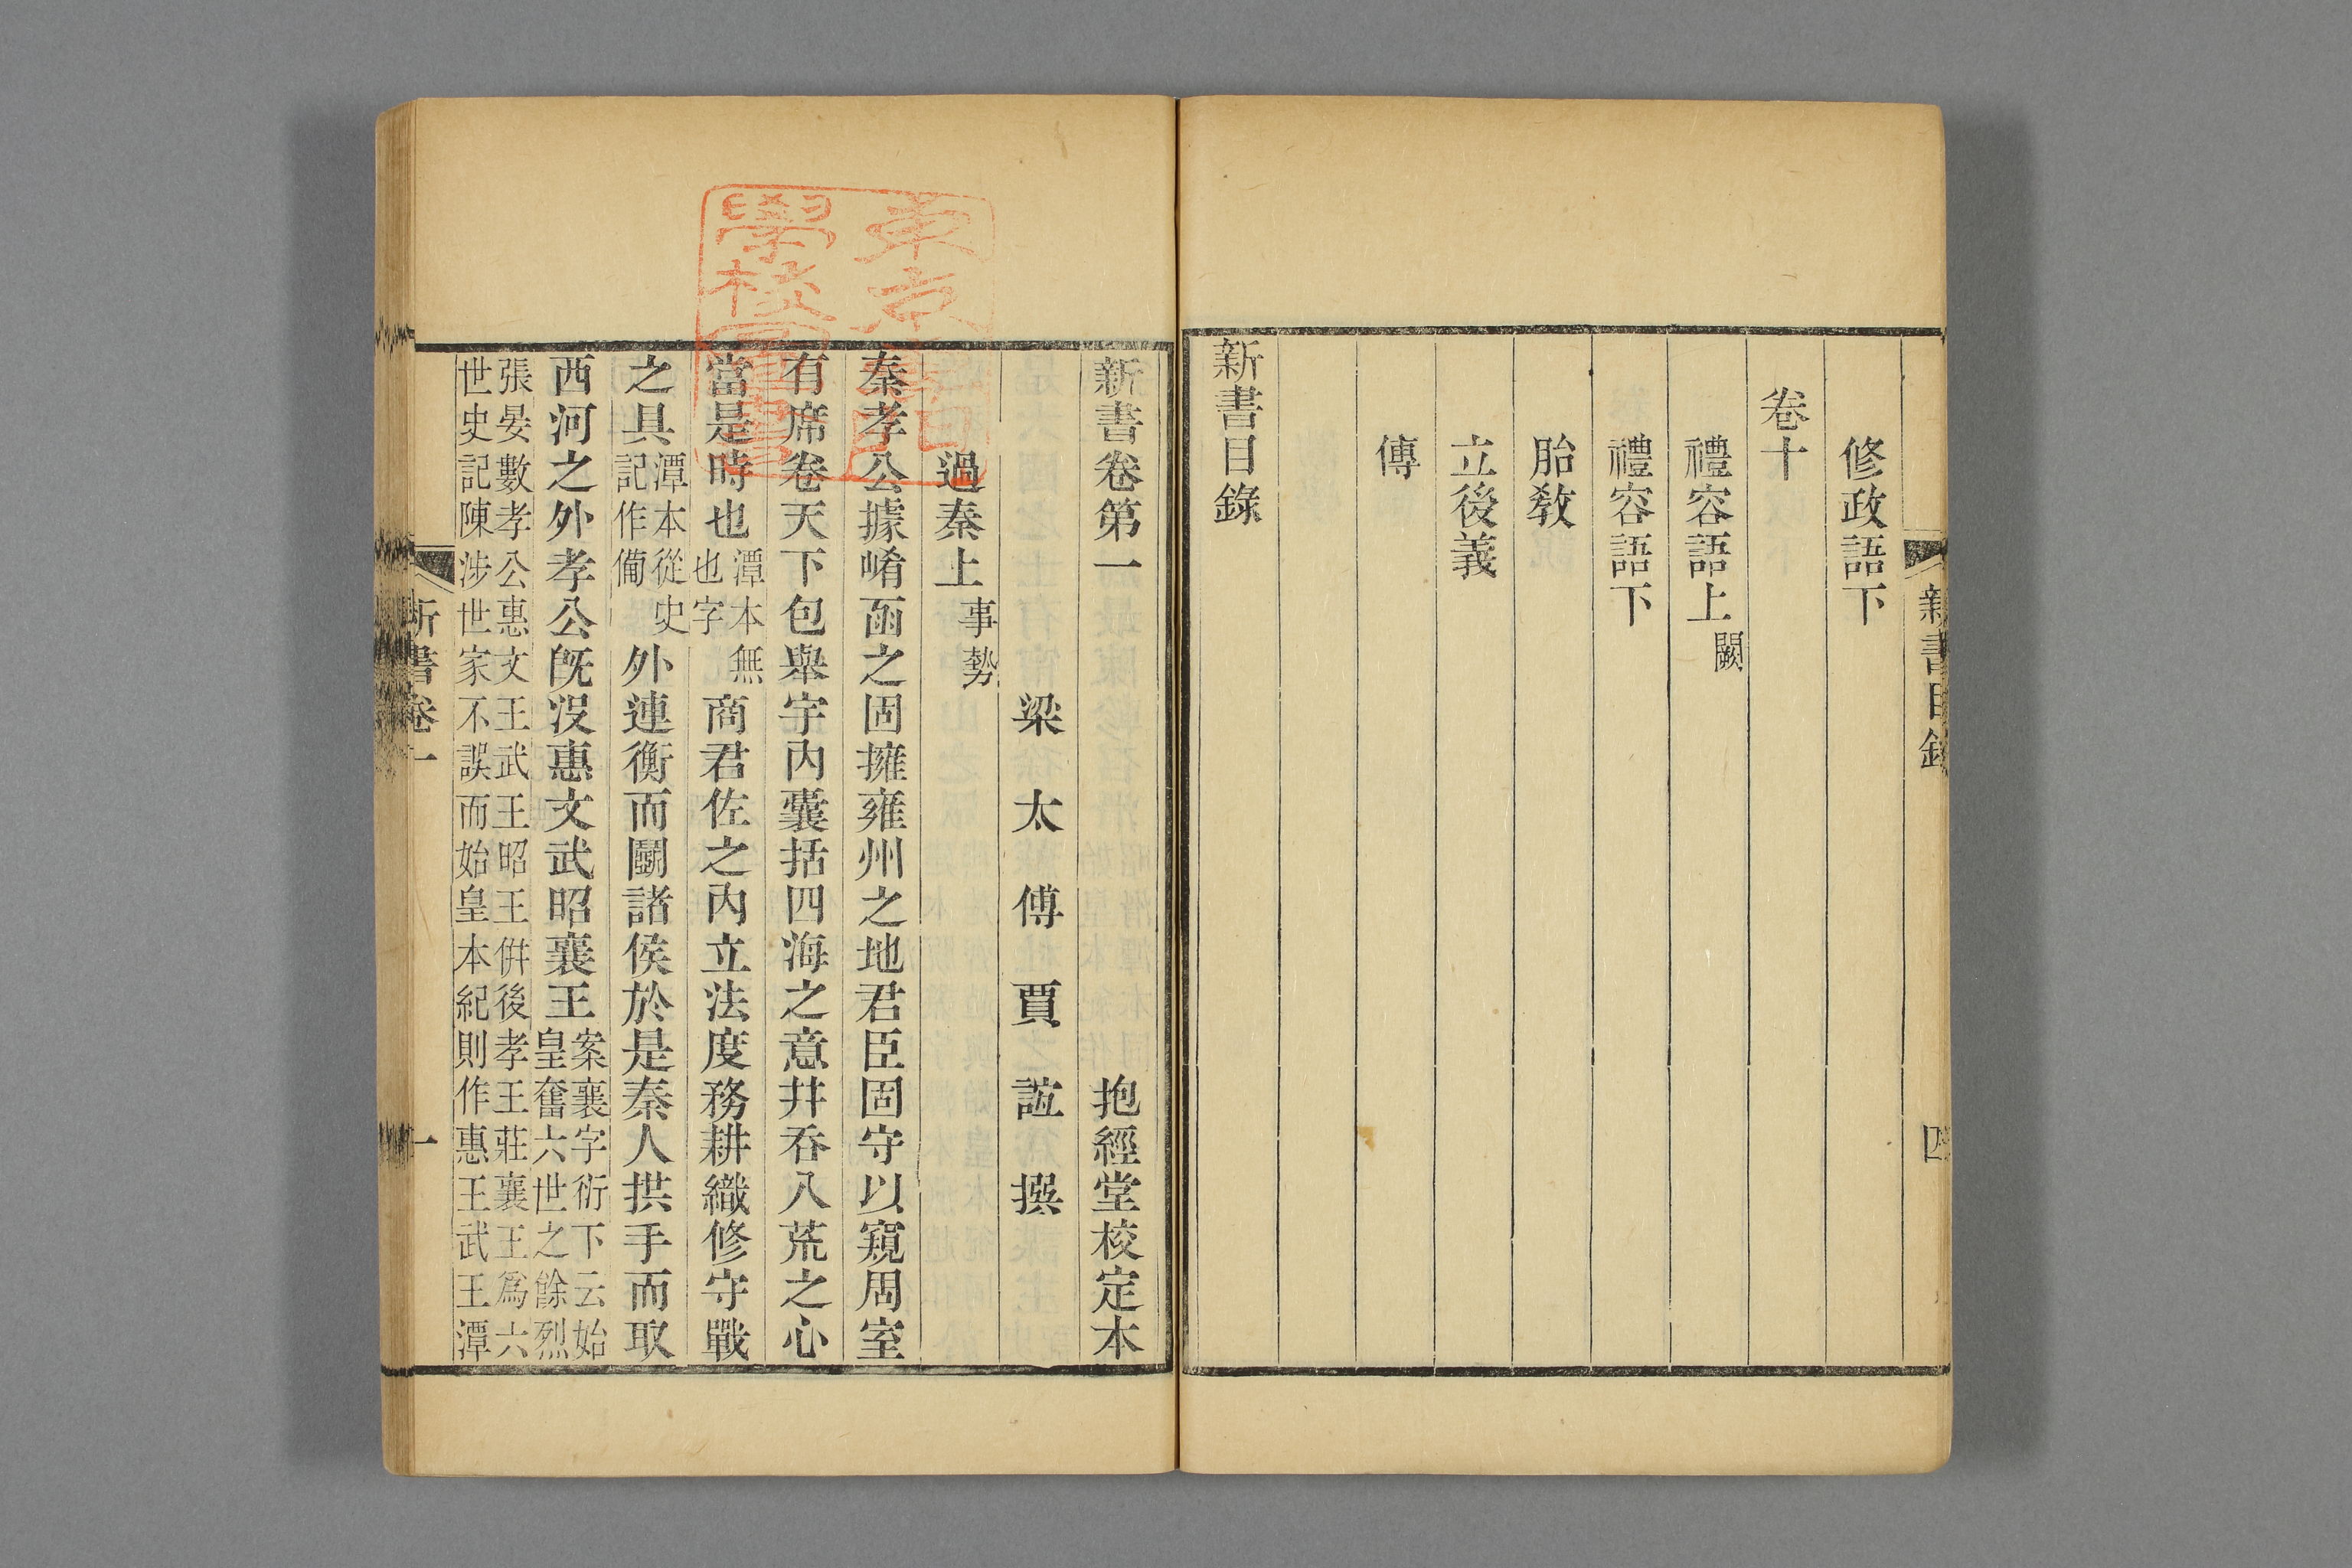 新書目錄
四
修政語下
卷十
禮容語上闕
禮容語下
胎教
立後義
傳
新書目錄
新書卷第一
抱經堂校定本
梁太傅賈誼撰
過秦上事勢
秦孝公據崤函之固擁雍州之地君臣固守以窺周室
有席卷天下包舉宇內囊括四海之意并吞八荒之心
當是時也潭本無也字商君佐之內立法度務耕織修守戰
之具潭本從史記作備外連衡而鬭諸侯於是秦人拱手而取
西河之外孝公旣沒惠文武昭襄王案襄字衍下云始皇奮六世之餘烈
張晏數孝公惠文王武王昭王併後孝王莊襄王爲六
世史記陳涉世家不誤而始皇本紀則作惠王武王潭
新書卷一
一